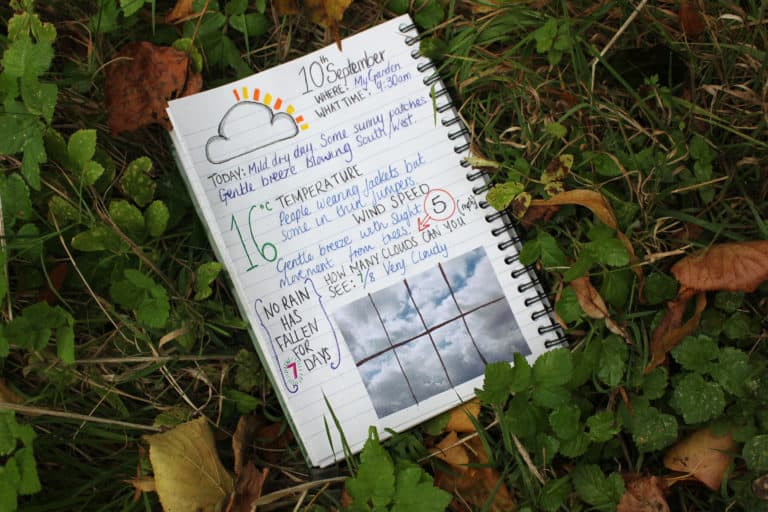 10th September
WHERE: My Garden
WHAT TIME: 9:30am
TODAY: Mild dry day. Some sunny patches
Gentle breeze blowing South/West
16°C TEMPERATURE
People wearing jackets but
some in thin jumpers
WIND SPEED 5 (mph)
Gentle breeze with slight
movement from trees.
HOW MANY CLOUDS CAN YOU
SEE: 7/8 Very Cloudy
NO RAIN
HAS
FALLEN
FOR
7 DAYS